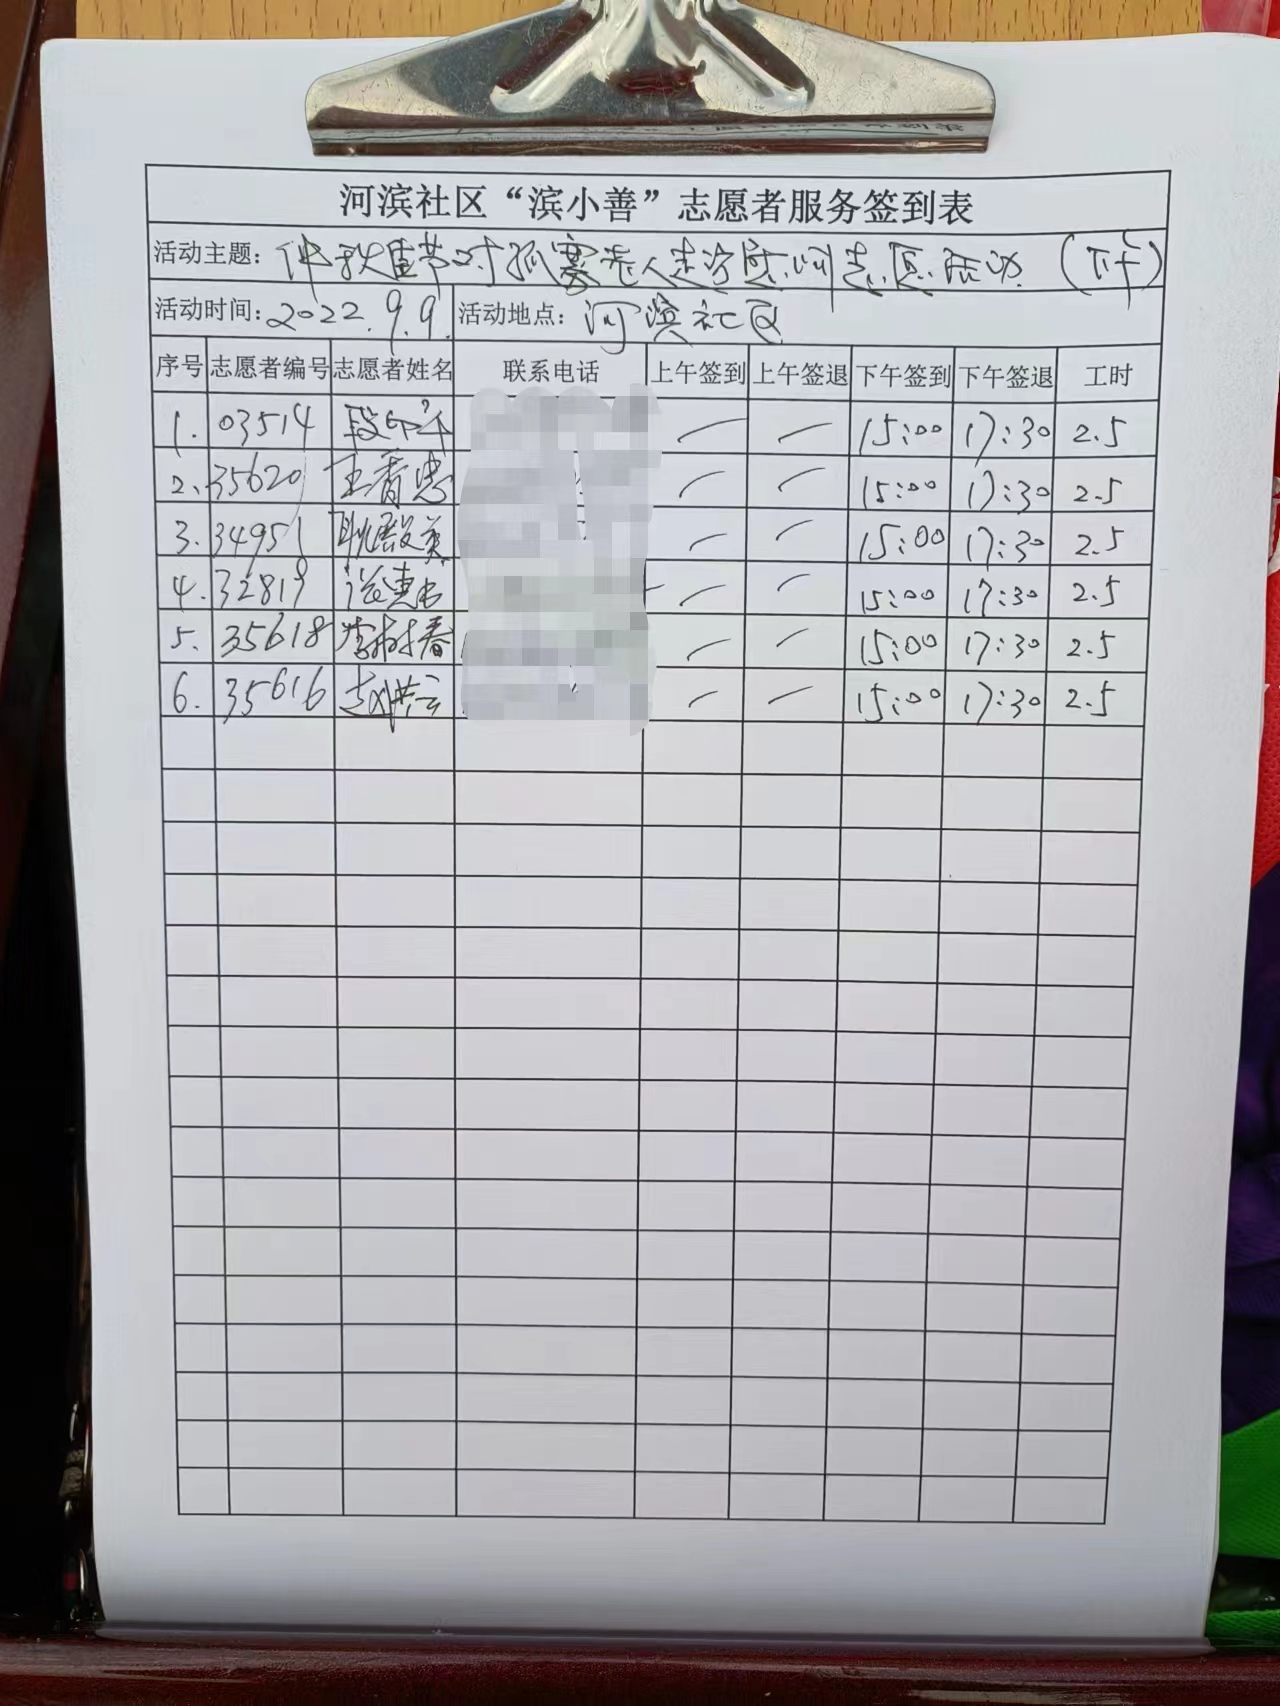 河滨社区“滨小善”志愿者服务签到表
活动主题：仲秋佳节对孤寡老人走访慰问志愿活动（下午）
活动时间：2022.9.9. 活动地点：河滨社区
序号 志愿者编号 志愿者姓名 联系电话 上午签到 上午签退 下午签到 下午签退 工时
1. 03514 段 — — 15:00 17:30 2.5
2. 35620 王香忠 — — 15:00 17:30 2.5
3. 34951 耿殿英 — — 15:00 17:30 2.5
4. 32819 — — 15:00 17:30 2.5
5. 35618 李树春 — — 15:00 17:30 2.5
6. 35616 赵洪云 — — 15:00 17:30 2.5